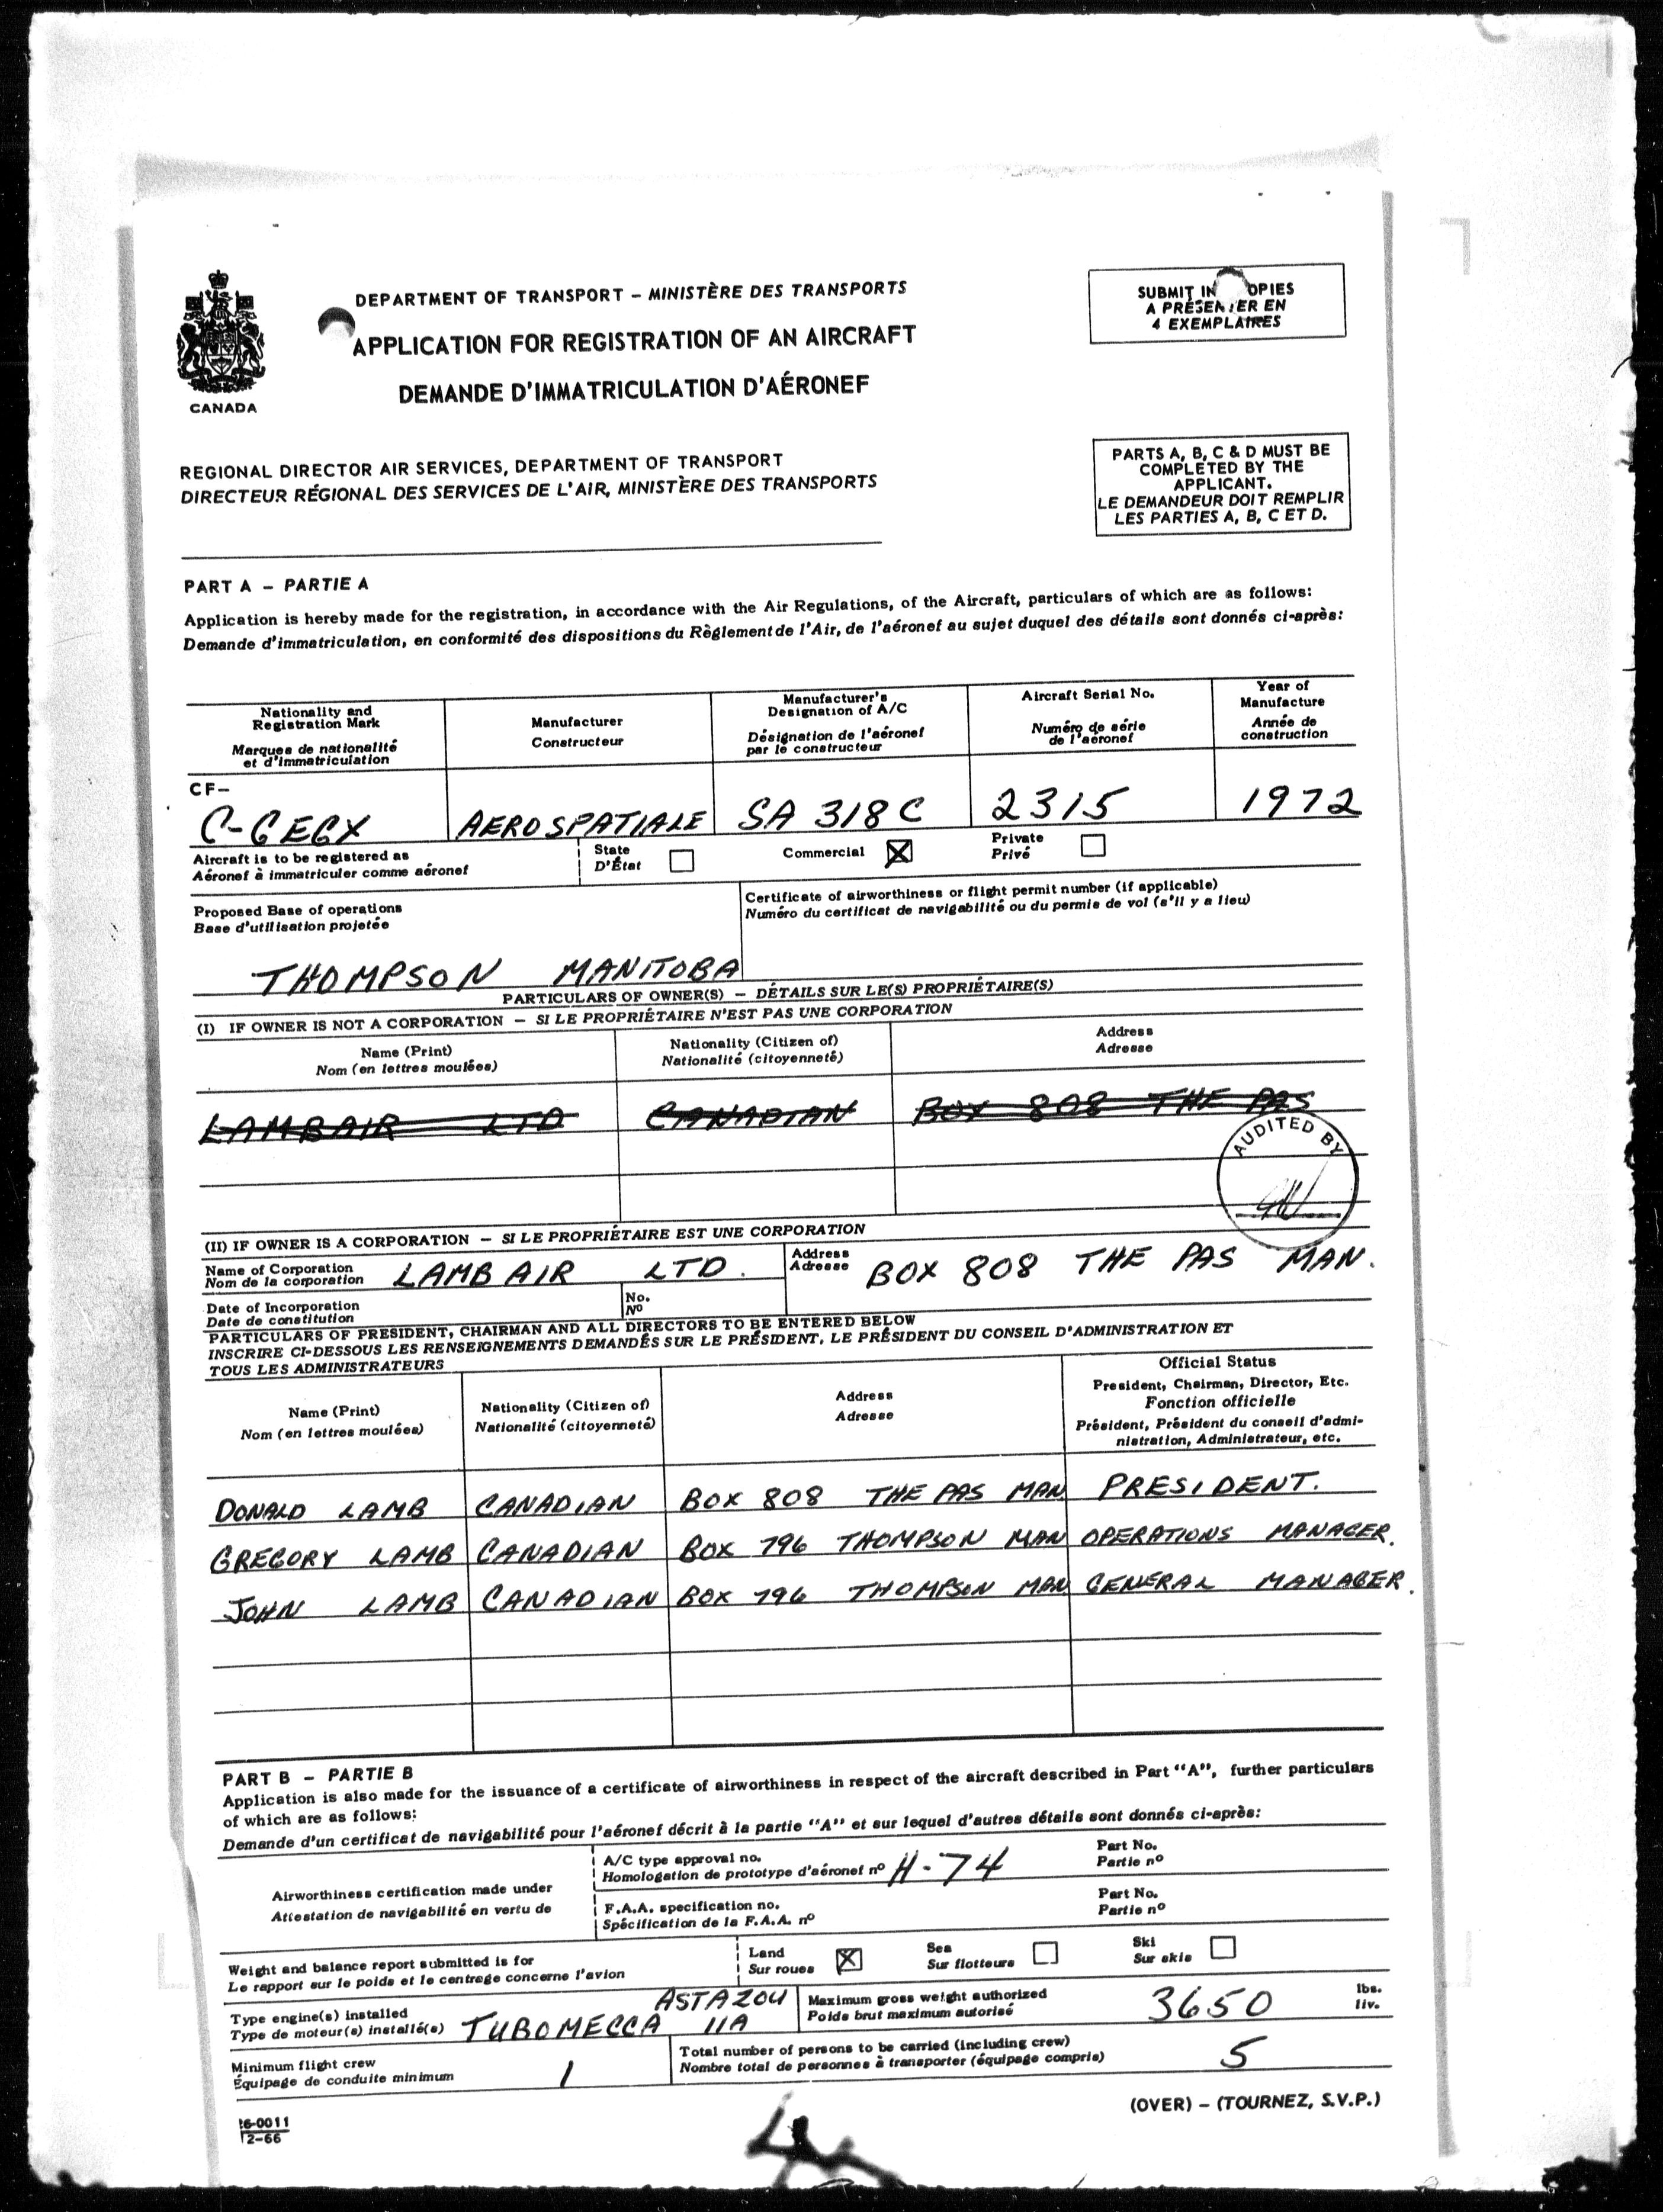 DEPARTMENT OF TRANSPORT – MINISTÈRE DES TRANSPORTS
APPLICATION FOR REGISTRATION OF AN AIRCRAFT
DEMANDE D'IMMATRICULATION D'AÉRONEF
CANADA
SUBMIT IN OPIES
A PRÉSENTER EN
4 EXEMPLAIRES
REGIONAL DIRECTOR AIR SERVICES, DEPARTMENT OF TRANSPORT
DIRECTEUR RÉGIONAL DES SERVICES DE L'AIR, MINISTÈRE DES TRANSPORTS
PARTS A, B, C & D MUST BE
COMPLETED BY THE
APPLICANT.
LE DEMANDEUR DOIT REMPLIR
LES PARTIES A, B, C ET D.
PART A – PARTIE A
Application is hereby made for the registration, in accordance with the Air Regulations, of the Aircraft, particulars of which are as follows:
Demande d'immatriculation, en conformité des dispositions du Règlement de l'Air, de l'aéronef au sujet duquel des détails sont donnés ci-après:
Nationality and
Registration Mark
Marques de nationalité
et d'immatriculation
Manufacturer
Constructeur
Manufacturer's
Designation of A/C
Désignation de l'aéronef
par le constructeur
Aircraft Serial No.
Numéro de série
de l'aéronef
Year of
Manufacture
Année de
construction
CF–
C-GEGX AEROSPATIALE SA 318C 2315 1972
Aircraft is to be registered as
Aéronef à immatriculer comme aéronef
State
D'État
Commercial
Private
Privé
Proposed Base of operations
Base d'utilisation projetée
THOMPSON MANITOBA
Certificate of airworthiness or flight permit number (if applicable)
Numéro du certificat de navigabilité ou du permis de vol (s'il y a lieu)
PARTICULARS OF OWNER(S) – DÉTAILS SUR LE(S) PROPRIÉTAIRE(S)
(I) IF OWNER IS NOT A CORPORATION – SI LE PROPRIÉTAIRE N'EST PAS UNE CORPORATION
Name (Print)
Nom (en lettres moulées)
Nationality (Citizen of)
Nationalité (citoyenneté)
Address
Adresse
LAMBAIR LTD CANADIAN BOX 808 THE PAS
AUDITED BY
(II) IF OWNER IS A CORPORATION – SI LE PROPRIÉTAIRE EST UNE CORPORATION
Name of Corporation
Nom de la corporation
LAMB AIR LTD.
Address
Adresse
BOX 808 THE PAS MAN.
Date of Incorporation
Date de constitution
No.
Nº
PARTICULARS OF PRESIDENT, CHAIRMAN AND ALL DIRECTORS TO BE ENTERED BELOW
INSCRIRE CI-DESSOUS LES RENSEIGNEMENTS DEMANDÉS SUR LE PRÉSIDENT, LE PRÉSIDENT DU CONSEIL D'ADMINISTRATION ET
TOUS LES ADMINISTRATEURS
Name (Print)
Nom (en lettres moulées)
Nationality (Citizen of)
Nationalité (citoyenneté)
Address
Adresse
Official Status
President, Chairman, Director, Etc.
Fonction officielle
Président, Président du conseil d'admi-
nistration, Administrateur, etc.
DONALD LAMB CANADIAN BOX 808 THE PAS MAN PRESIDENT.
GREGORY LAMB CANADIAN BOX 796 THOMPSON MAN OPERATIONS MANAGER.
JOHN LAMB CANADIAN BOX 796 THOMPSON MAN GENERAL MANAGER.
PART B – PARTIE B
Application is also made for the issuance of a certificate of airworthiness in respect of the aircraft described in Part "A", further particulars
of which are as follows:
Demande d'un certificat de navigabilité pour l'aéronef décrit à la partie "A" et sur lequel d'autres détails sont donnés ci-après:
Airworthiness certification made under
Attestation de navigabilité en vertu de
A/C type approval no.
Homologation de prototype d'aéronef nº H-74
Part No.
Partie nº
F.A.A. specification no.
Spécification de la F.A.A. nº
Part No.
Partie nº
Weight and balance report submitted is for
Le rapport sur le poids et le centrage concerne l'avion
Land
Sur roues
Sea
Sur flotteurs
Ski
Sur skis
Type engine(s) installed
Type de moteur(s) installé(s)
ASTAZOU
TUBOMECCA IIA
Maximum gross weight authorized
Poids brut maximum autorisé
3650
lbs.
liv.
Minimum flight crew
Équipage de conduite minimum
1
Total number of persons to be carried (including crew)
Nombre total de personnes à transporter (équipage compris)
5
(OVER) – (TOURNEZ, S.V.P.)
26-0011
12-66